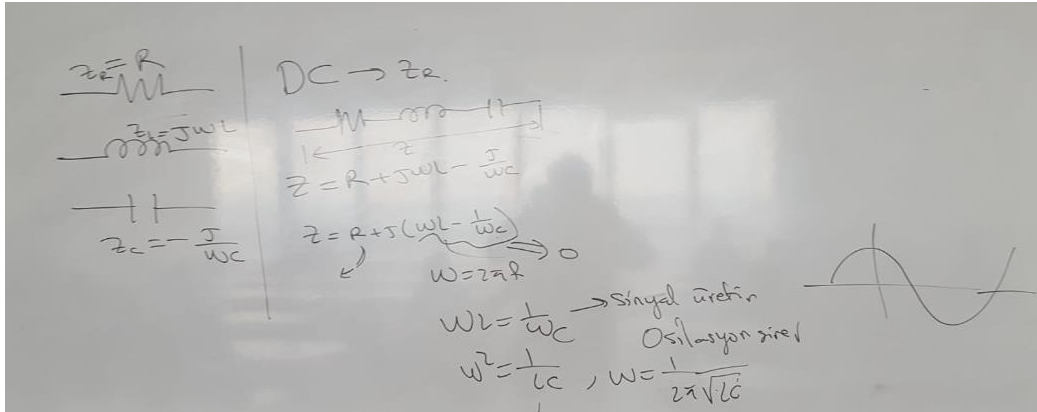 Z_R = R
Z_L = JWL
Z_C = - J/WC
DC → Z_R.
Z
Z = R + JWL - J/WC
Z = R + J(WL - 1/WC) ⇒ 0
W = 2πf
WL = 1/WC → Sinyal üretir
Osilasyon
W² = 1/LC , W = 1/2π√LC